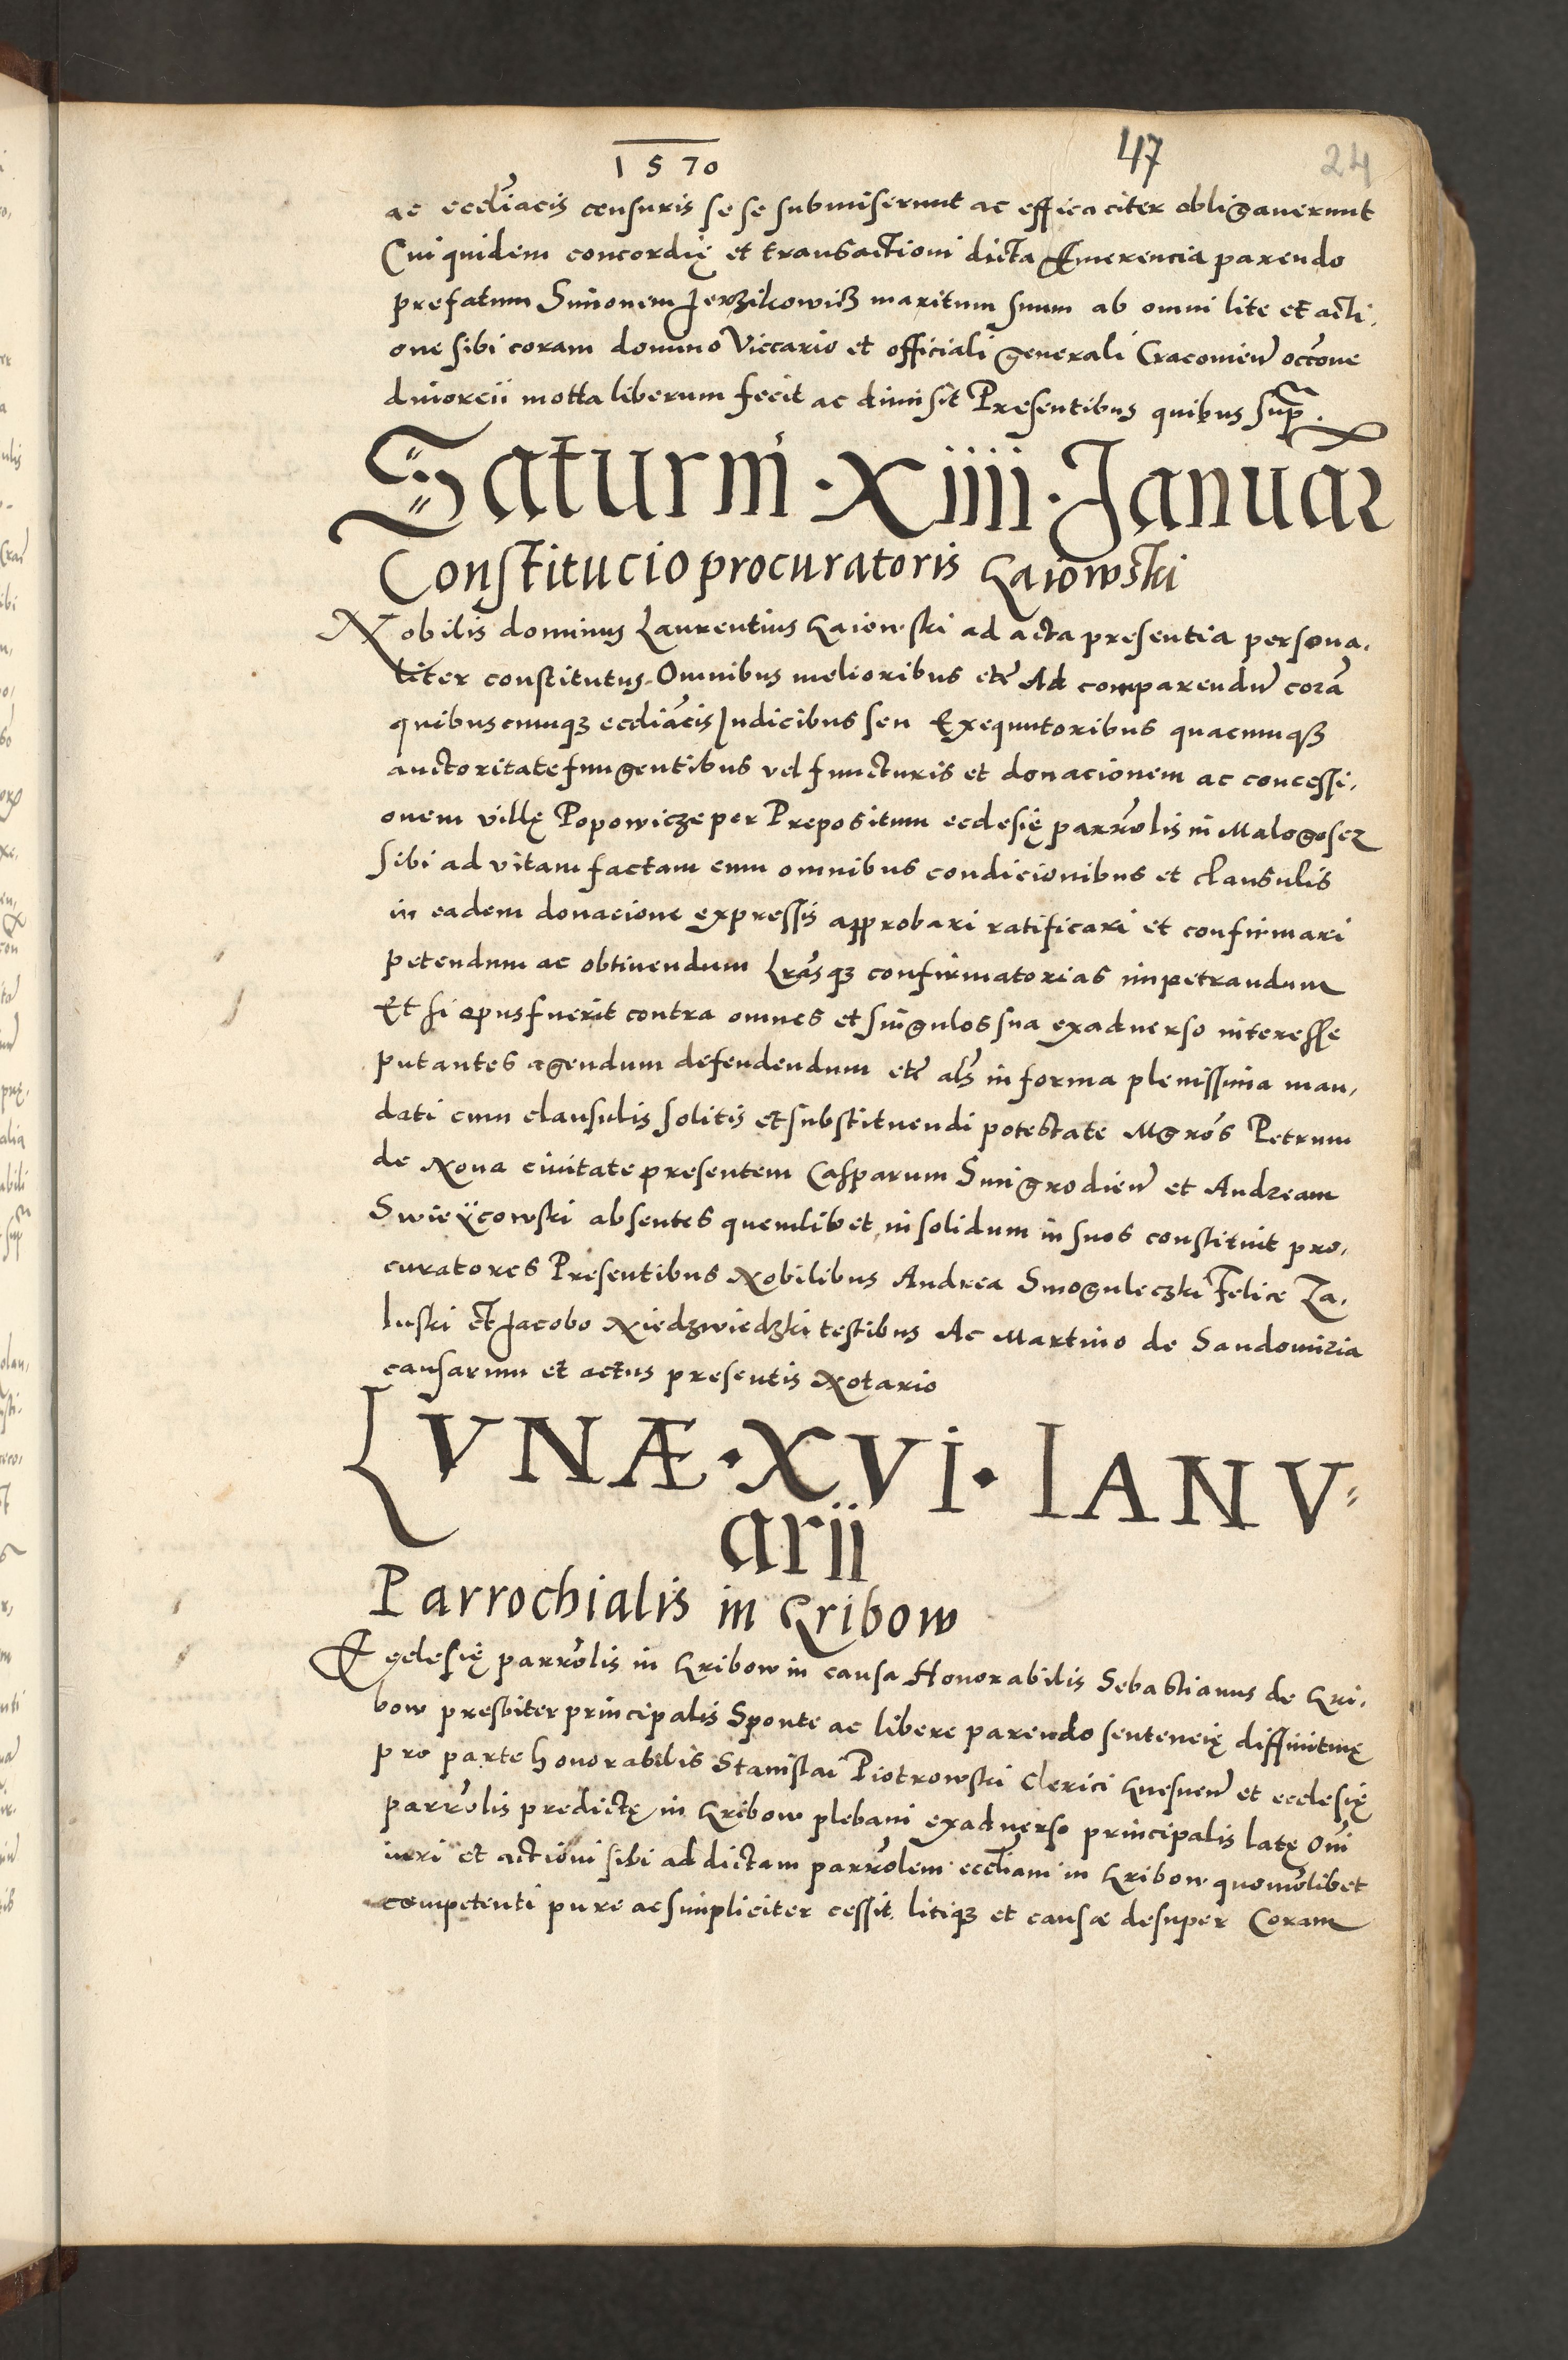 1570
47
24
ac eccliacis censuris se se submiserunt ac efficaciter obligaverunt
Cui quidem concordię et transactioni dicta Emerencia parendo
prefatum Simonem Jerzikowicz maritum suum ab omni lite et acti,
one sibi coram domino Viccario et officiali generali Cracovien occone
divorcii motta liberum fecit ac dimisit Presentibus quibus sup
Saturni · XIIII · Januar
Constitucio procuratoris Gaiowski
Nobilis dominus Laurentius Gaiewski ad acta presentia persona,
liter constitutus. Omnibus melioribus etc Ad comparendum corā
quibuscumque eccliacis Iudicibus seu Exequutoribus quacumque
auctoritate fungentibus vel functuris et donacionem ac concessi,
onem villę Popowicze per Prepositum ecclesię parrolis in Malogosez
sibi ad vitam factam cum omnibus condicionibus et clausulis
in eadem donacione expressis approbari ratificari et confirmari
petendum ac obtinendum Lrasque confirmatorias impetrandum
Et si opus fuerit contra omnes et singulos sua exadverso interesse
putantes agendum defendendum etc als in forma plenissima man,
dati cum clausulis solitis et substituendi potestate Mgros Petrum
de Nova civitate presentem Casparum Smigrodien et Andream
Swieÿcowski absentes quemlibet, insolidum in suos constituit pro,
curatores Presentibus Nobilibus Andrea Smoguleczki Felice Za,
luski et Jacobo Niedzwiedzki testibus Ac Martino de Sandomiria
causarum et actus presentis Notario
LVNÆ · XVI · IANV=
arii
Parrochialis in Gribow
Ecclesię parrolis in Gribow in causa Honorabilis Sebastianus de Gri,
bow presbiter principalis Sponte ac libere parendo sentencię diffinitivę
pro parte honorabilis Stanislai Piotrowski Clerici Gnesnen et ecclesię
parrolis predictę in Gribow plebani exadverso principalis latę Omi
iuri et actioni sibi ad dictam parrolem eccliam in Gribow quomolibet
competenti pure ac simpliciter cessit, litique et causæ desuper Coram